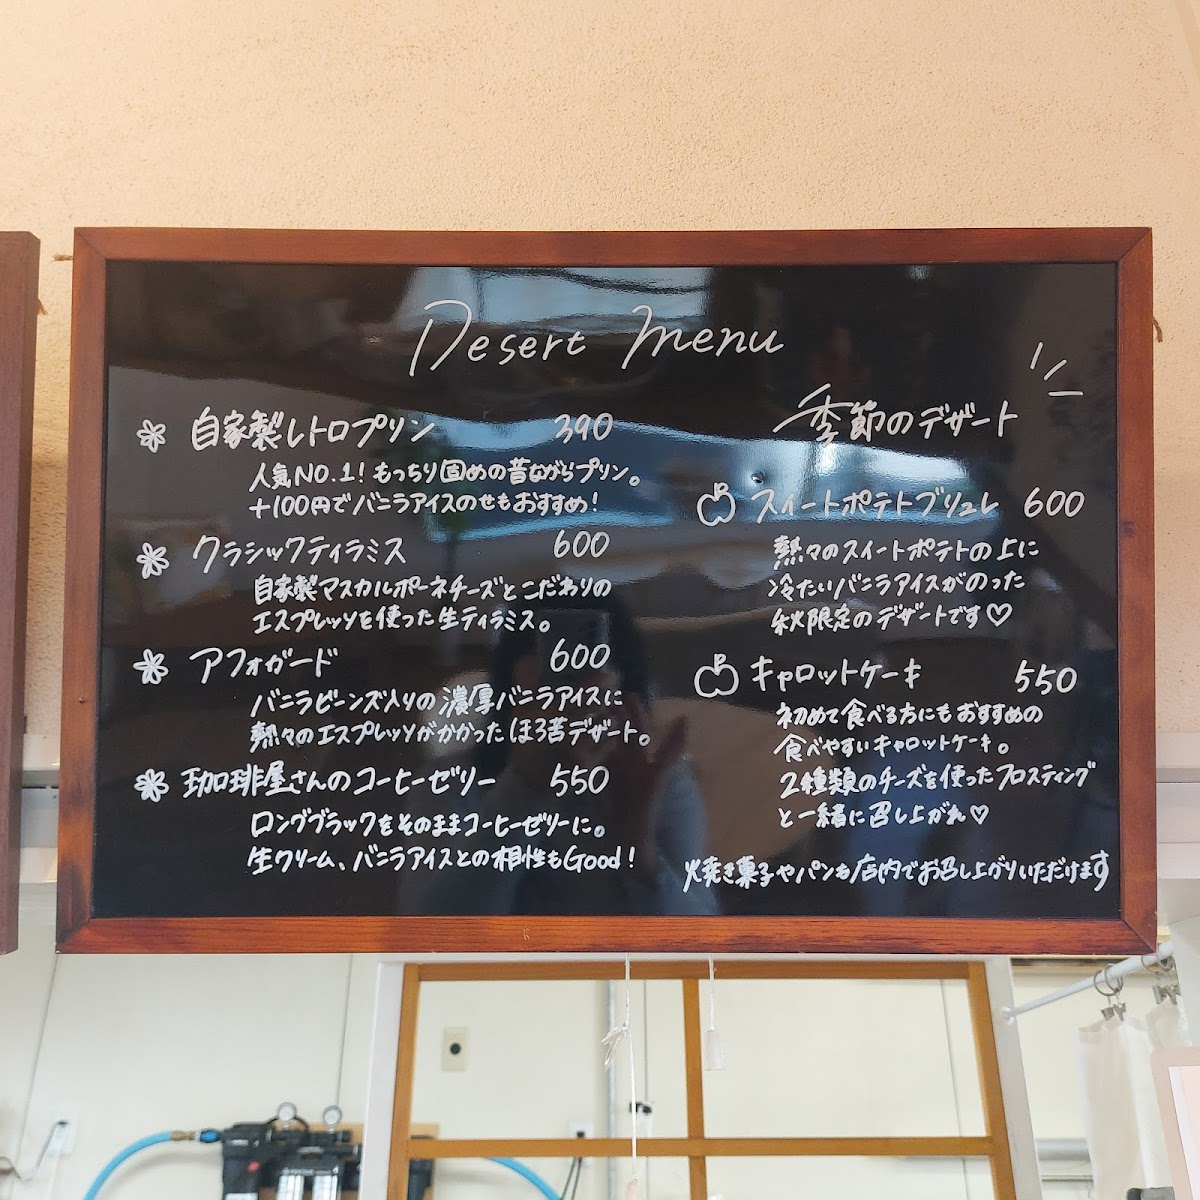 Desert Menu
自家製レトロプリン 390
人気NO.1! もっちり固めの昔ながらプリン。
+100円でバニラアイスのせもおすすめ!
クラシックティラミス 600
自家製マスカルポーネチーズとこだわりの
エスプレッソを使った生ティラミス。
アフォガード 600
バニラビーンズ入りの濃厚バニラアイスに
熱々のエスプレッソがかかったほろ苦デザート。
珈琲屋さんのコーヒーゼリー 550
ロングブラックをそのままコーヒーゼリーに。
生クリーム、バニラアイスとの相性もGood!
季節のデザート
スイートポテトブリュレ 600
熱々のスイートポテトの上に
冷たいバニラアイスがのった
秋限定のデザートです♡
キャロットケーキ 550
初めて食べる方にもおすすめの
食べやすいキャロットケーキ。
2種類のチーズを使ったフロスティング
と一緒に召し上がれ♡
焼き菓子やパンも店内でお召し上がりいただけます